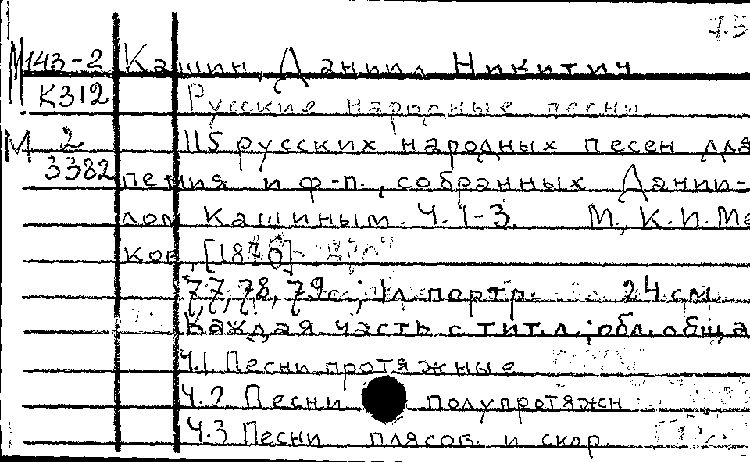 М143-2 Кашин, Даниил Никитич
К312 Русские народные песни
М 2 115 русских народных песен для
3382 пения и ф-п., собранных Дании-
лом Кашиным. Ч. 1-3. М., К.И. Ме
ков, [1870]
77, 78, 79 с., 1 л. портр. 24 см
Каждая часть с тит. л.; обл. общая
Ч.1 Песни протяжные
Ч.2 Песни полупротяжн
Ч.3 Песни плясов. и скор.